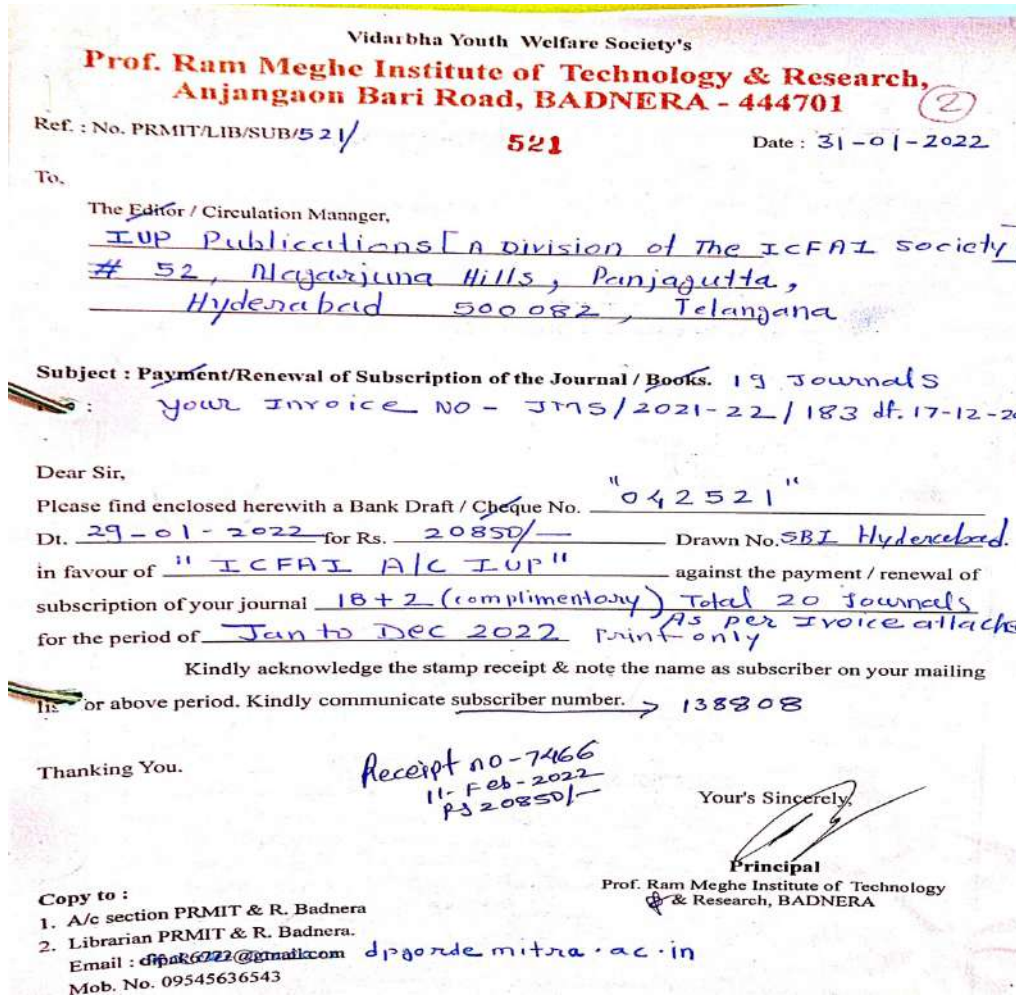 Vidarbha Youth Welfare Society's
Prof. Ram Meghe Institute of Technology & Research,
Anjangaon Bari Road, BADNERA - 444701
2
Ref. : No. PRMIT/LIB/SUB/521/ 521 Date : 31-01-2022
To,
The Editor / Circulation Manager,
IUP Publications [A Division of The ICFAI Society
# 52, Nagarjuna Hills, Panjagutta,
Hyderabad 500082, Telangana
Subject : Payment/Renewal of Subscription of the Journal / Books. 19 Journals
: Your Invoice NO - JMS/2021-22/183 dt. 17-12-20
Dear Sir,
Please find enclosed herewith a Bank Draft / Cheque No. "042521"
Dt. 29-01-2022 for Rs. 20850/— Drawn No. SBI Hyderabad.
in favour of "ICFAI A/C IUP" against the payment / renewal of
subscription of your journal 18+2 (complimentory) Total 20 Journals
for the period of Jan to Dec 2022 Print only As per Ivoice attache
Kindly acknowledge the stamp receipt & note the name as subscriber on your mailing
or above period. Kindly communicate subscriber number. → 138808
Thanking You.
Receipt no-7466
11-Feb-2022
Rs 20850/-
Your's Sincerely,
Principal
Prof. Ram Meghe Institute of Technology
& Research, BADNERA
Copy to :
1. A/c section PRMIT & R. Badnera
2. Librarian PRMIT & R. Badnera.
Email : @gmail.com dpgorde mitra.ac.in
Mob. No. 09545636543